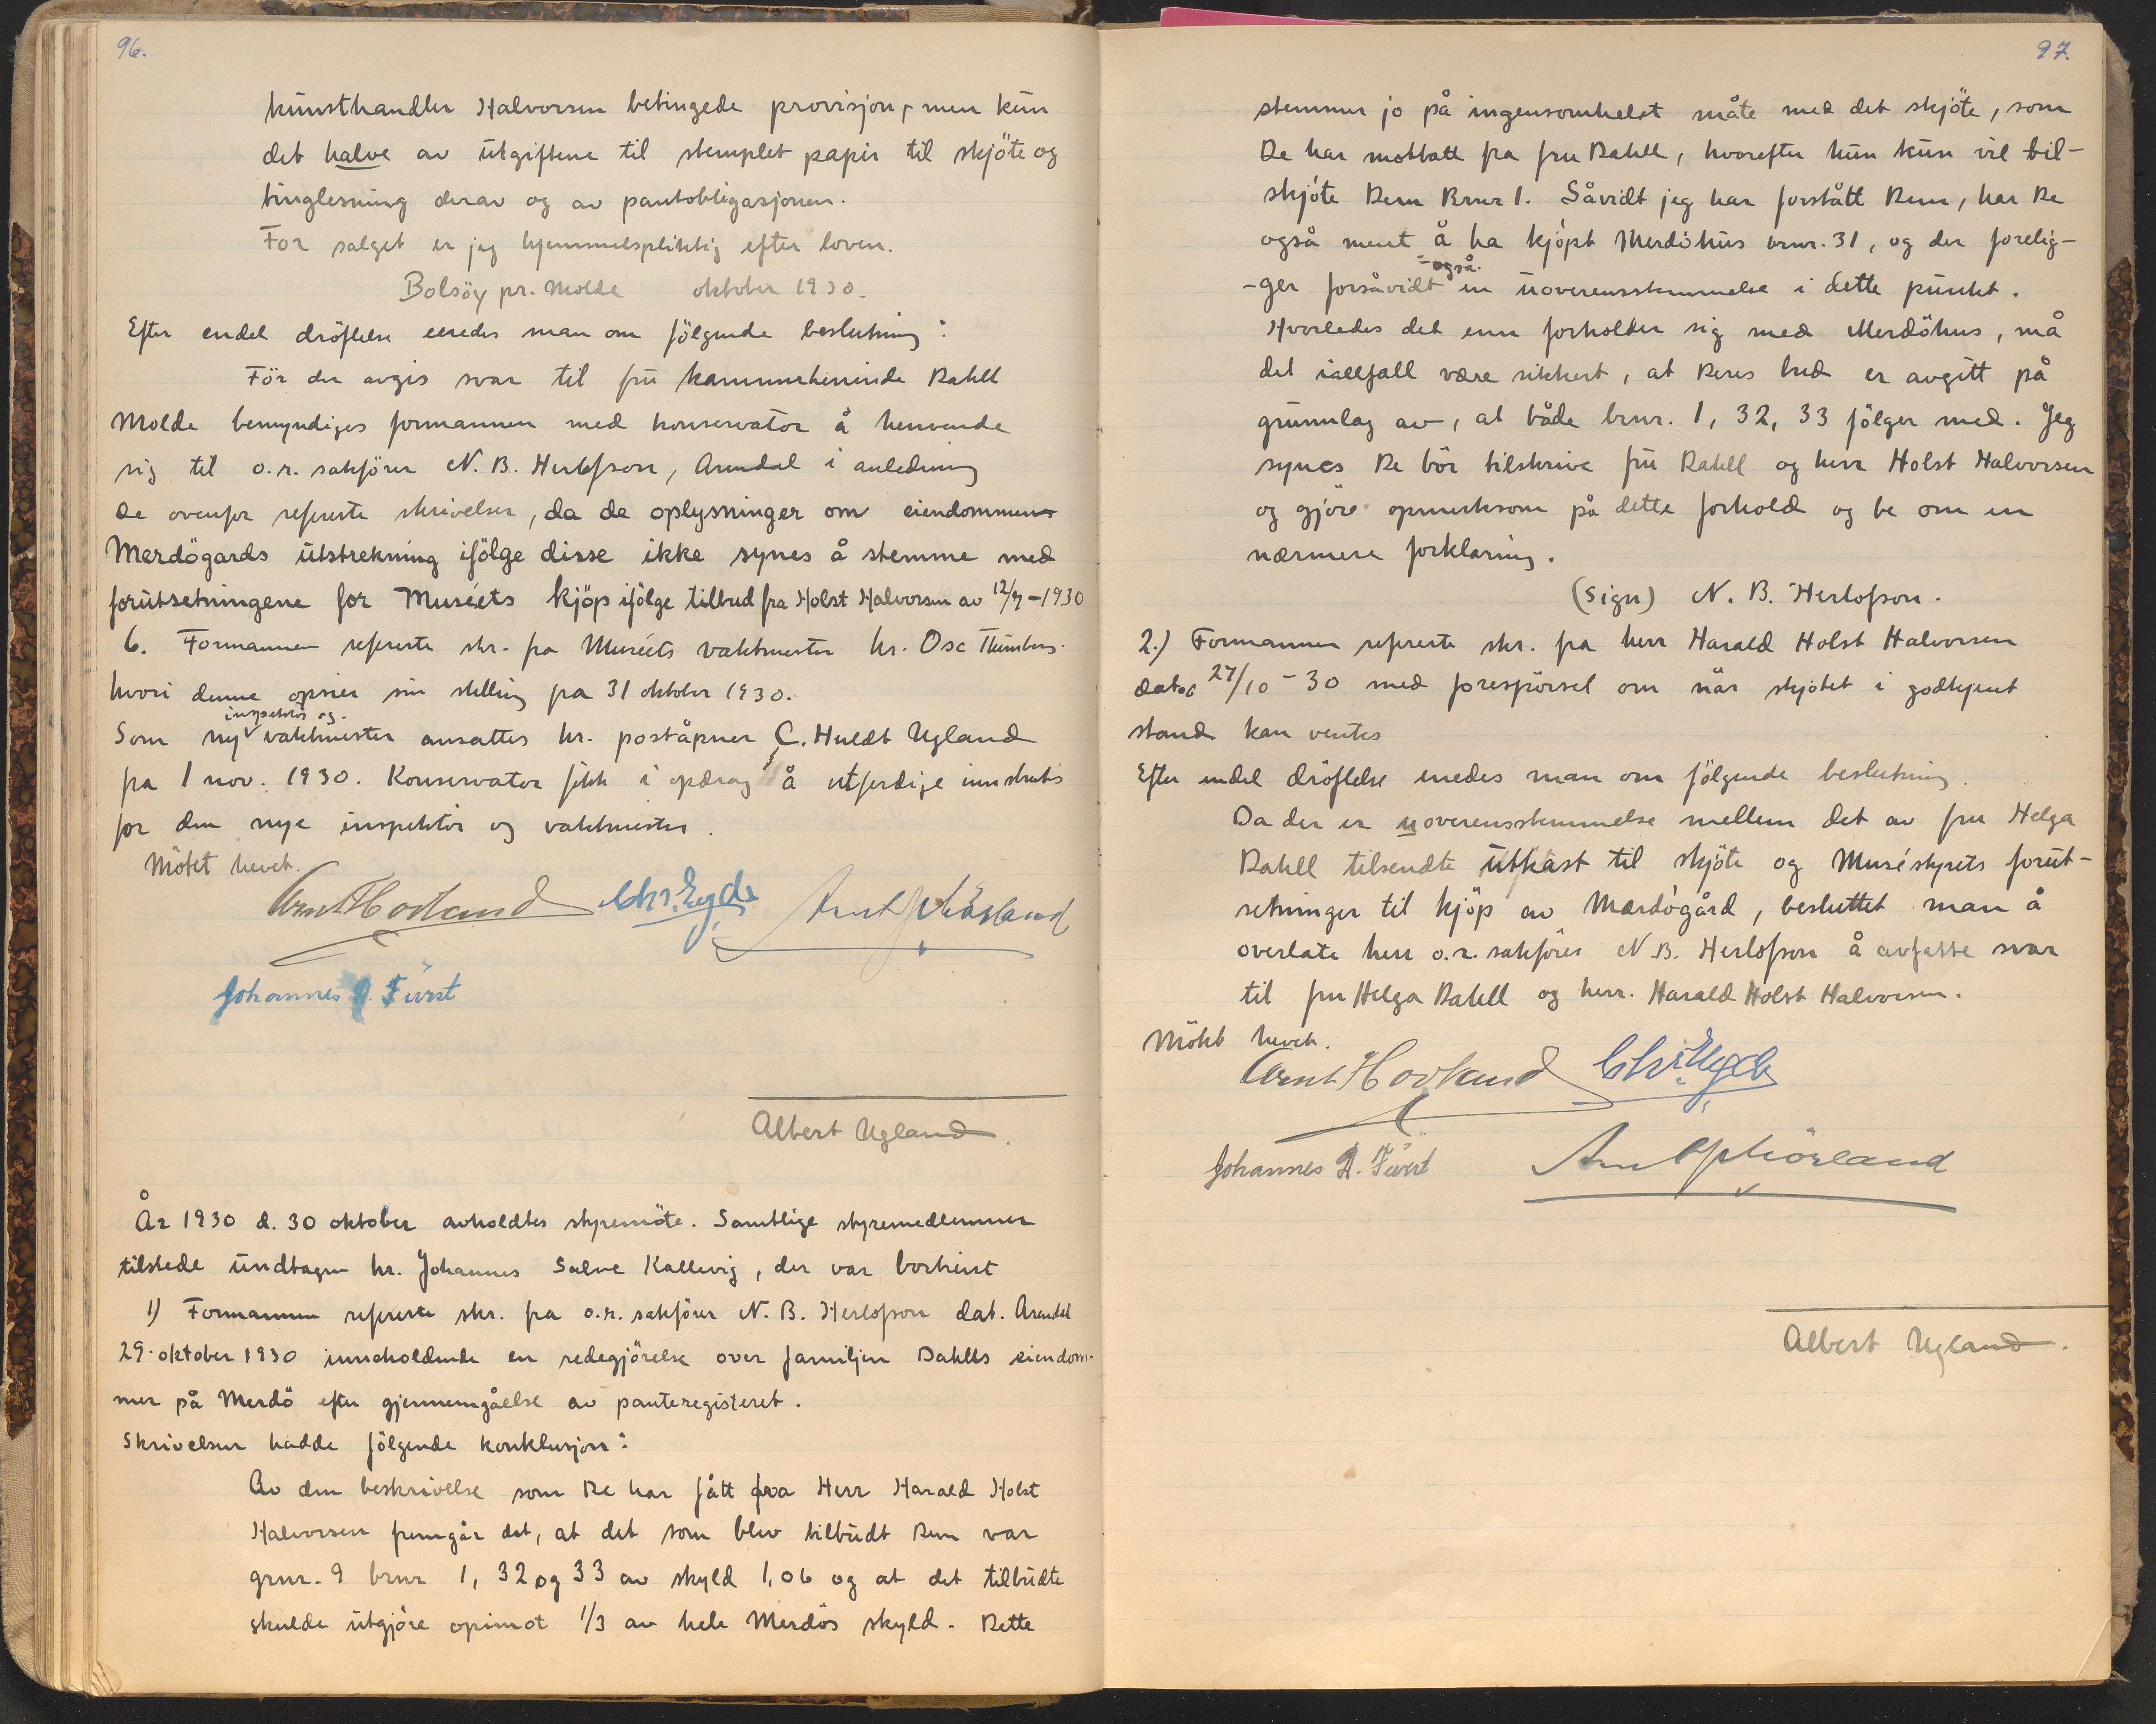 96.
kunsthandler Halvorsen betingede provisjon, men kun
det halve av utgiftene til stemplet papir til skjöte og
tinglesning derav og av pantobligasjonen.
For salget er jeg hjemmelspliktig efter loven.
Bolsöy pr. Molde oktober 1930.
Efter endel dröftelse enedes man om fölgende beslutning:
För der avgis svar til fru kammerherinde Dahll
Molde bemyndiges formannen med konservator å henvende
sig til o.r. sakförer N. B. Herlofson, Arendal i anledning
de ovenfor refererte skrivelser, da de oplysninger om eiendommens
Merdögårds utstrekning ifölge disse ikke synes å stemme med
forutsetningene for Muséets kjöp ifölge tilbud fra Holst Halvorsen av 12/7-1930
6. Formannen refererte skr. fra Muséets vaktmester hr. Osc
hvori denne opsier sin stilling fra 31 oktober 1930.
inspektör og
Som ny vaktmester ansattes hr. poståpner C. Huldt Ugland
fra 1 nov. 1930. Konservator fikk i opdrag å utferdige instruks
for den nye inspektör og vaktmester.
Mötet hevet.
Arnt Hovland Chr. Eyde Arnt J Mörland
Johannes A. Fürst
Albert Ugland.
År 1930 d. 30 oktober avholdtes styremöte. Samtlige styremedlemmer
tilstede undtagen hr. Johannes Salve Kallevig, der var bortreist
1) Formannen refererte skr. fra o.r. sakförer N. B. Herlofson dat. Arendal
29. oktober 1930 inneholdende en redegjörelse over familjen Dahlls eiendom-
mer på Merdö efter gjennemgåelse av panteregisteret.
Skrivelsen hadde fölgende konklusjon:
Av den beskrivelse som De har fått fra Herr Harald Holst
Halvorsen fremgår det, at det som blev tilbudt Dem var
grnr. 9 brnr 1, 32 og 33 av skyld 1,06 og at det tilbudte
skulde utgjöre opimot 1/3 av hele Merdös skyld. Dette
97.
stemmer jo på ingensomhelst måte med det skjöte, som
De har mottatt fra fru Dahll, hvorefter hun kun vil til-
skjöte Dem Brnr 1. Såvidt jeg har forstått Dem, har De
også ment å ha kjöpt Merdöhus brnr. 31, og der forelig-
- også.
-ger forsåvidt en uoverensstemmelse i dette punkt.
Hvorledes det enn forholder sig med Merdöhus, må
det iallfall være sikkert, at Deres bud er avgitt på
grunnlag av, at både brnr. 1, 32, 33 fölger med. Jeg
synes De bör tilskrive fru Dahll og herr Holst Halvorsen
og gjöre opmerksom på dette forhold og be om en
nærmere forklaring.
(Sign) N. B. Herlofson.
2.) Formannen refererte skr. fra herr Harald Holst Halvorsen
datert 27/10 - 30 med forespörsel om når skjötet i godkjent
stand kan ventes
Efter endel dröftelse enedes man om fölgende beslutning.
Da der er uoverensstemmelse mellem det av fru Helga
Dahll tilsendte utkast til skjöte og Muséstyrets forut-
setninger til kjöp av Mærdögård, besluttet man å
overlate herr o.r. sakförer N. B. Herlofson å avfatte svar
til fru Helga Dahll og herr. Harald Holst Halvorsen.
Mötet hevet.
Arnt Hovland Chr. Eyde
Johannes A. Fürst Arnt J Mörland
Albert Ugland.